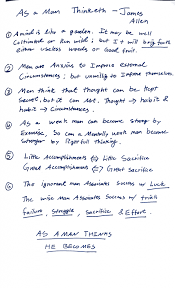 As a Man Thinketh - James
Allen
① A mind is like a garden. It may be well
cultivated or run wild; but it will bring forth
either useless weeds or good fruit.
② Men are Anxious to Improve external
Circumstances; but unwilling to Improve themselves.
③ Men think that thought can be kept
Secret, but it can not. Thought → habit &
habit → Circumstances.
④ As a weak man can become strong by
Exercise, so can a mentally weak man become
stronger by rigorous thinking.
⑤ Little Accomplishments ⇔ Little Sacrifice
Great Accomplishments ⇔ Great Sacrifice
⑥ The ignorant man Associates Success w/ Luck
The wise man Associates Success w/ trials
failure, struggle, sacrifice & Effort.
AS A MAN THINKS
HE BECOMES